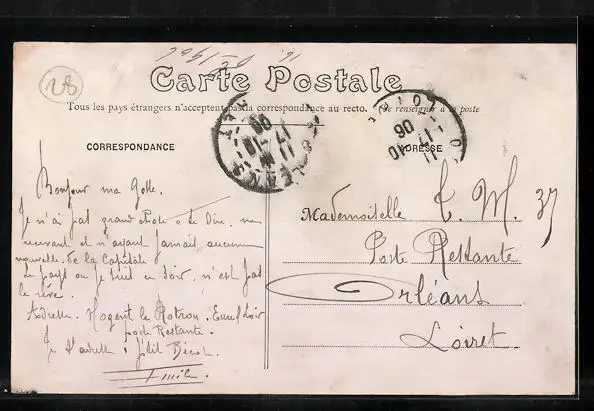 28
Carte Postale
Tous les pays étrangers n'acceptent pas la correspondance au recto. (Se renseigner à la poste
CORRESPONDANCE
ADRESSE
Bonjour ma
Je n'ai pas grand chose à te Dire, ne
recevant et n'ayant Jamais aucune
nouvelle de la Capitale
Le pays ou je suis ce soir, n'est pas
le rêve.
Adresse. Nogent le Rotrou. Eure & Loir
poste Restante.
Je t'adresse 1 p'tit Bécot.
Emile.
Mademoiselle E. M. 37
Poste Restante
Orléans
Loiret.